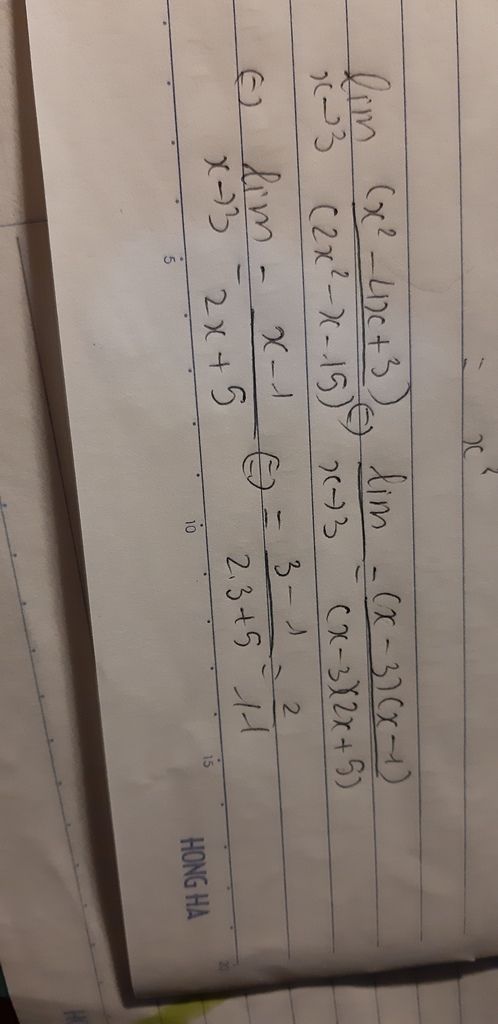 x²
lim x→3 (x² - 4x + 3) / (2x² - x - 15) ⇔ lim x→3 = (x - 3)(x - 1) / (x - 3)(2x + 5)
⇔ lim x→3 = x - 1 / 2x + 5 ⇔ = 3 - 1 / 2.3 + 5 = 2 / 11
5 10 15 20
HONG HA